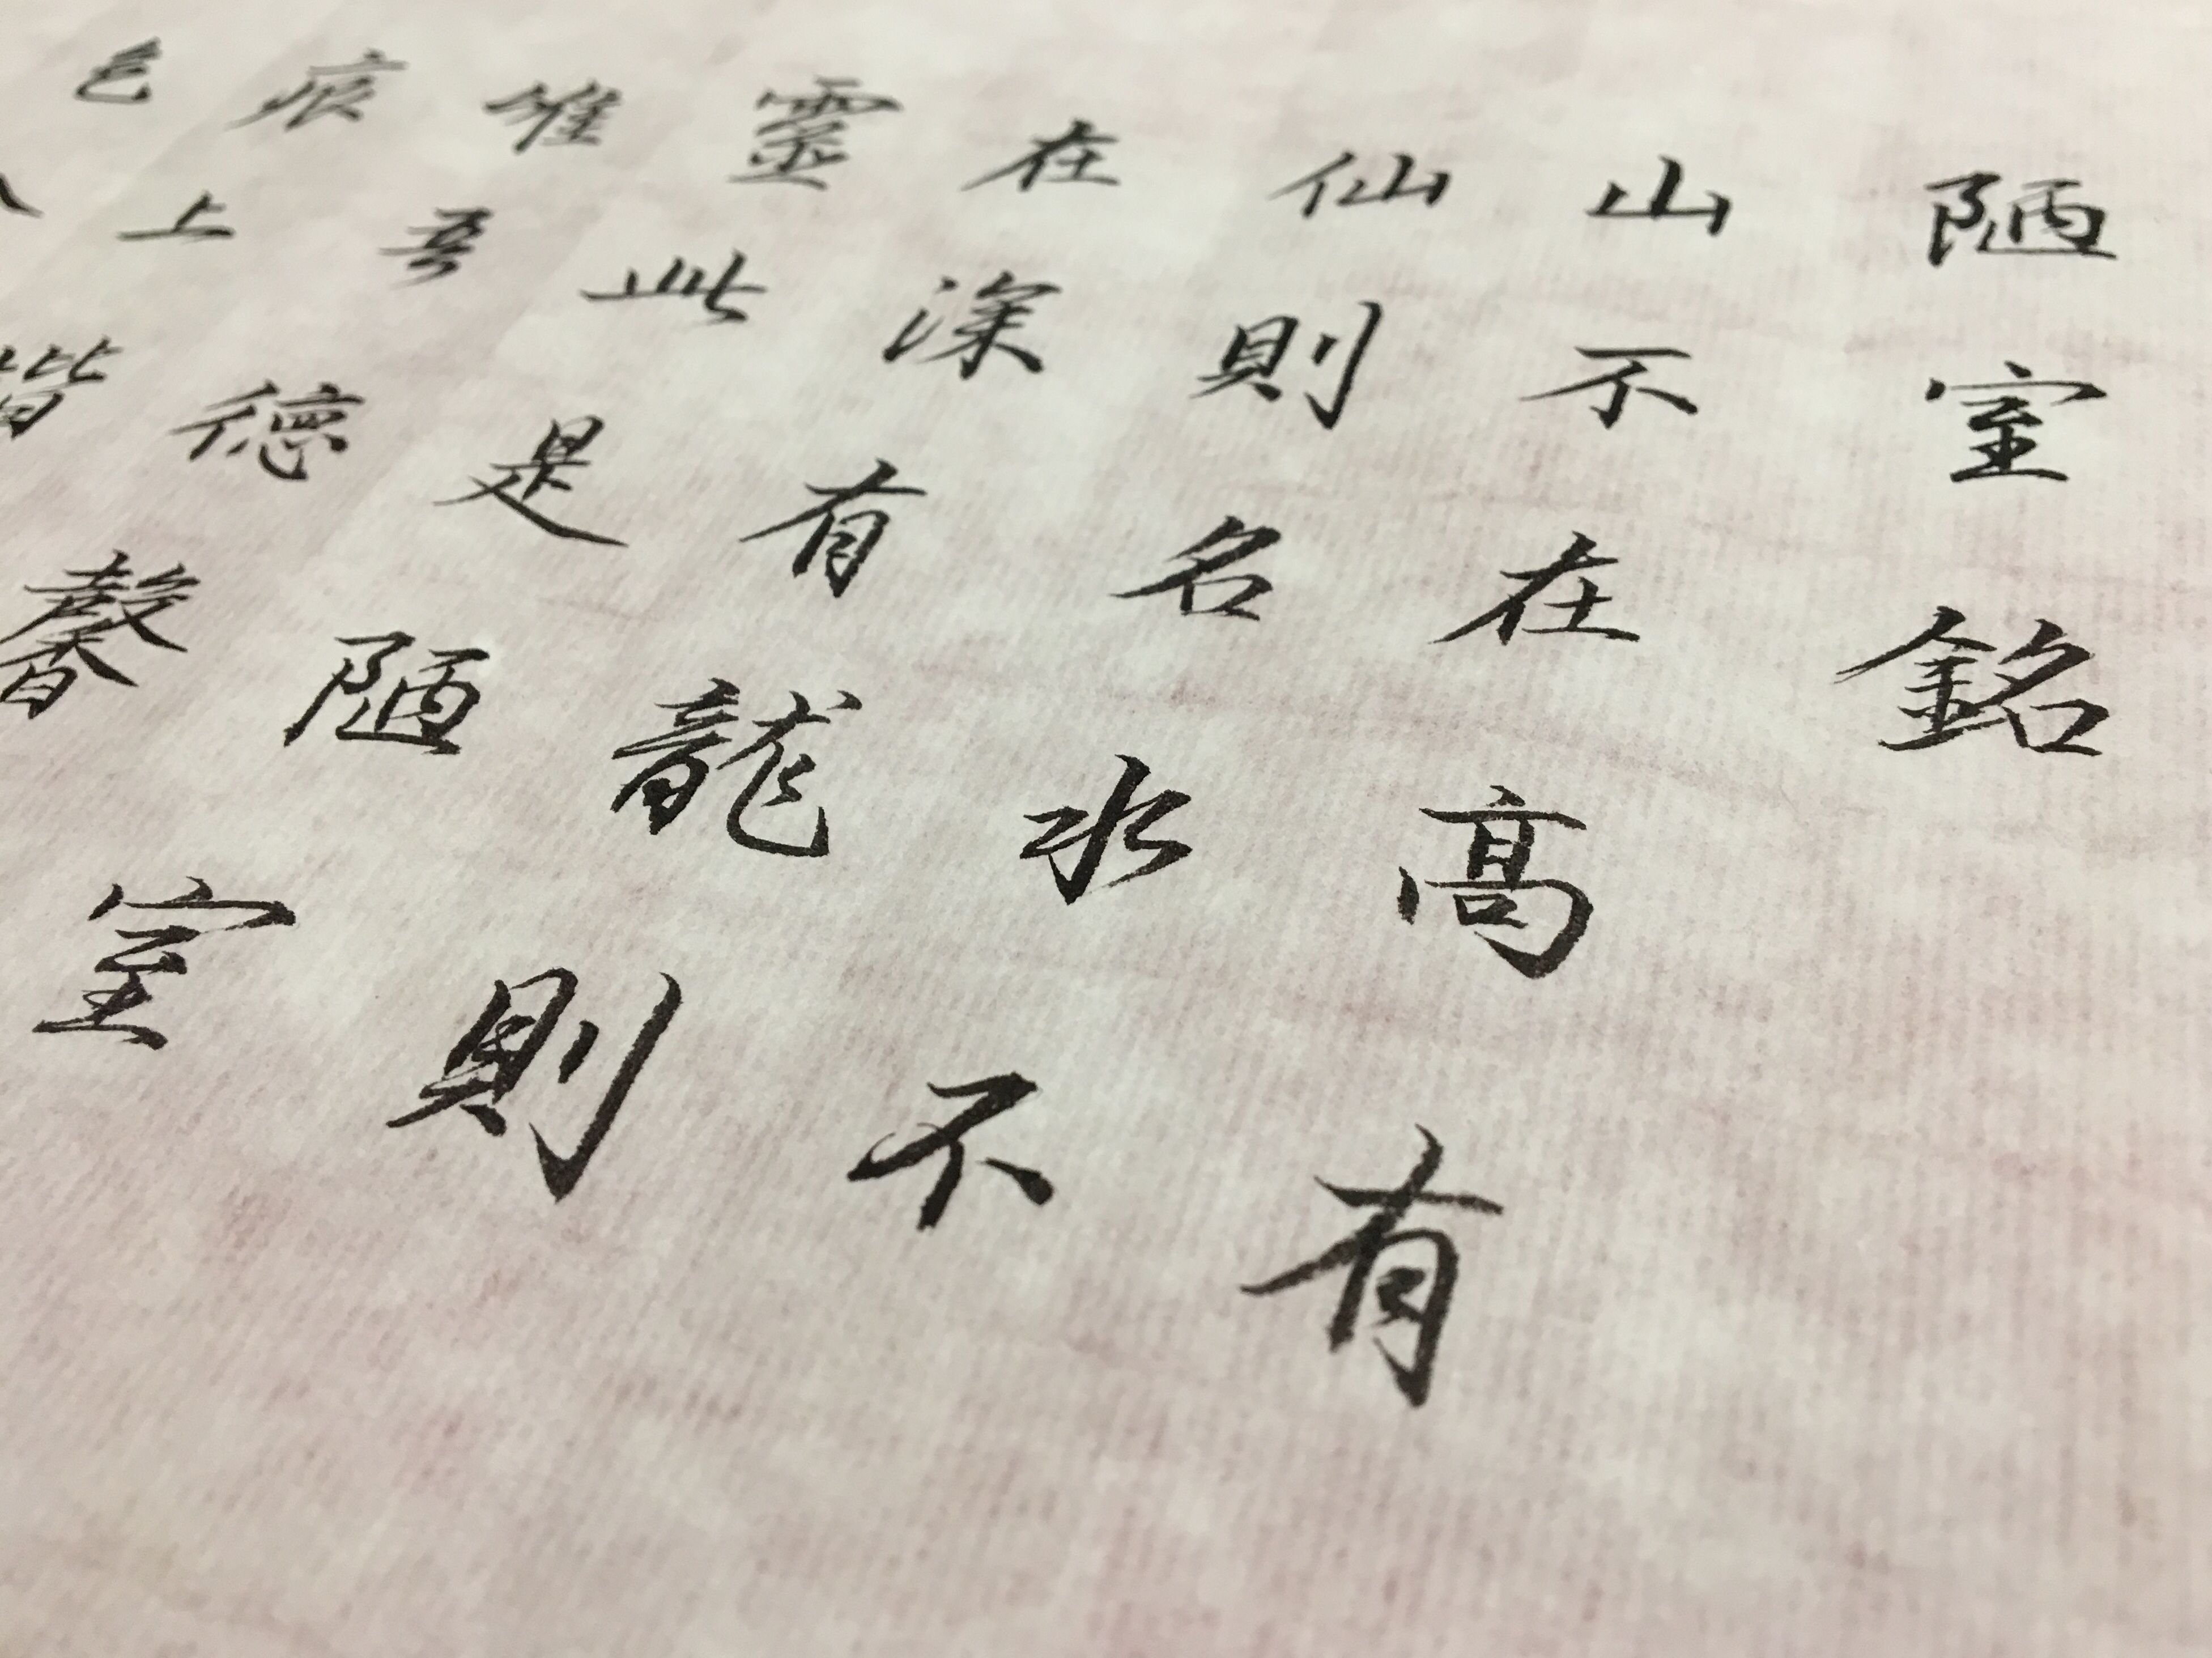 陋室銘
山不在高有
仙則名水不
在深有龍則
靈此是陋室
惟吾德馨
痕上
色